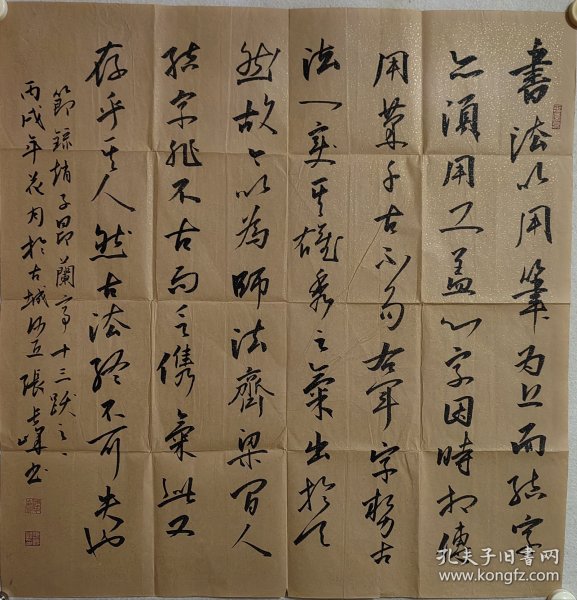 書法以用筆为上而结字
亦須用工盖字因時相傳
用筆千古不易右軍字勢古
法一变其雄秀之氣出於天
然故々以為師法齊梁間人
结字非不古而乏儁氣此又
存乎其人然古法終不可失也
節錄趙子昂蘭亭十三跋之一
丙戌年花月於古城張峰书
孔夫子旧书网
www.kongfz.com